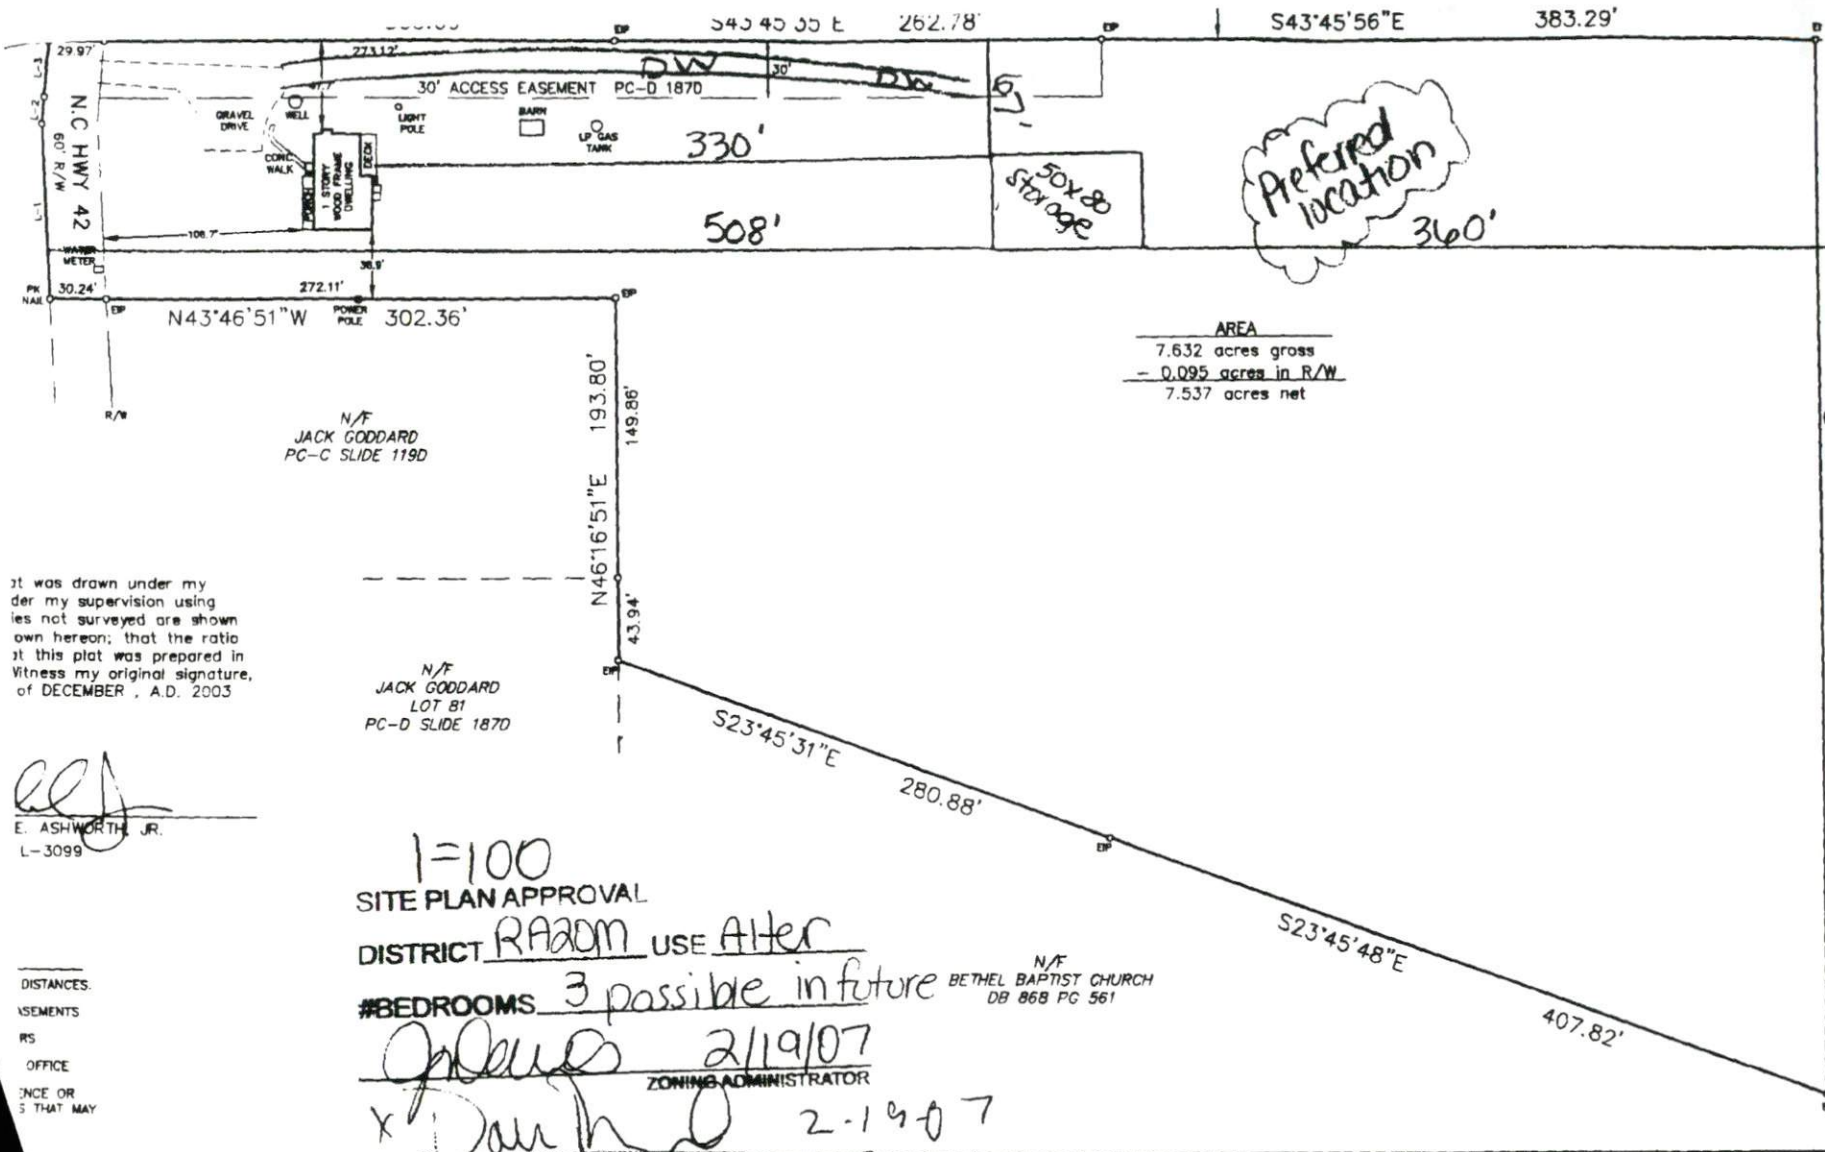 S43°45'35"E 262.78'
S43°45'56"E 383.29'
EIP
EIP
29.97'
273.12'
DW
DW
30'
L-3
L-2
L-1
N.C HWY 42
60' R/W
47.7'
30' ACCESS EASEMENT PC-D 187D
GRAVEL
DRIVE
WELL
LIGHT
POLE
BARN
LP GAS
TANK
CONC
WALK
PORCH
1 STORY
WOOD FRAME
DWELLING
DECK
330'
50x80
Storage
Preferred
location
508'
360'
108.7'
WATER
METER
36.9'
PK
NAIL
30.24'
272.11'
EIP
EIP
N43°46'51"W
POWER
POLE
302.36'
R/W
AREA
7.632 acres gross
- 0.095 acres in R/W
7.537 acres net
N/F
JACK GODDARD
PC-C SLIDE 119D
N46°16'51"E 193.80'
149.86'
43.94'
EIP
at was drawn under my
der my supervision using
ies not surveyed are shown
own hereon; that the ratio
at this plat was prepared in
Witness my original signature,
of DECEMBER , A.D. 2003
N/F
JACK GODDARD
LOT 81
PC-D SLIDE 187D
S23°45'31"E
280.88'
EIP
E. ASHWORTH, JR.
L-3099
1=100
SITE PLAN APPROVAL
DISTRICT RA20M USE Alter
#BEDROOMS 3 possible in future
2/19/07
ZONING ADMINISTRATOR
X
2-19-07
N/F
BETHEL BAPTIST CHURCH
DB 868 PG 561
S23°45'48"E
407.82'
DISTANCES.
ASEMENTS
RS
OFFICE
ENCE OR
S THAT MAY